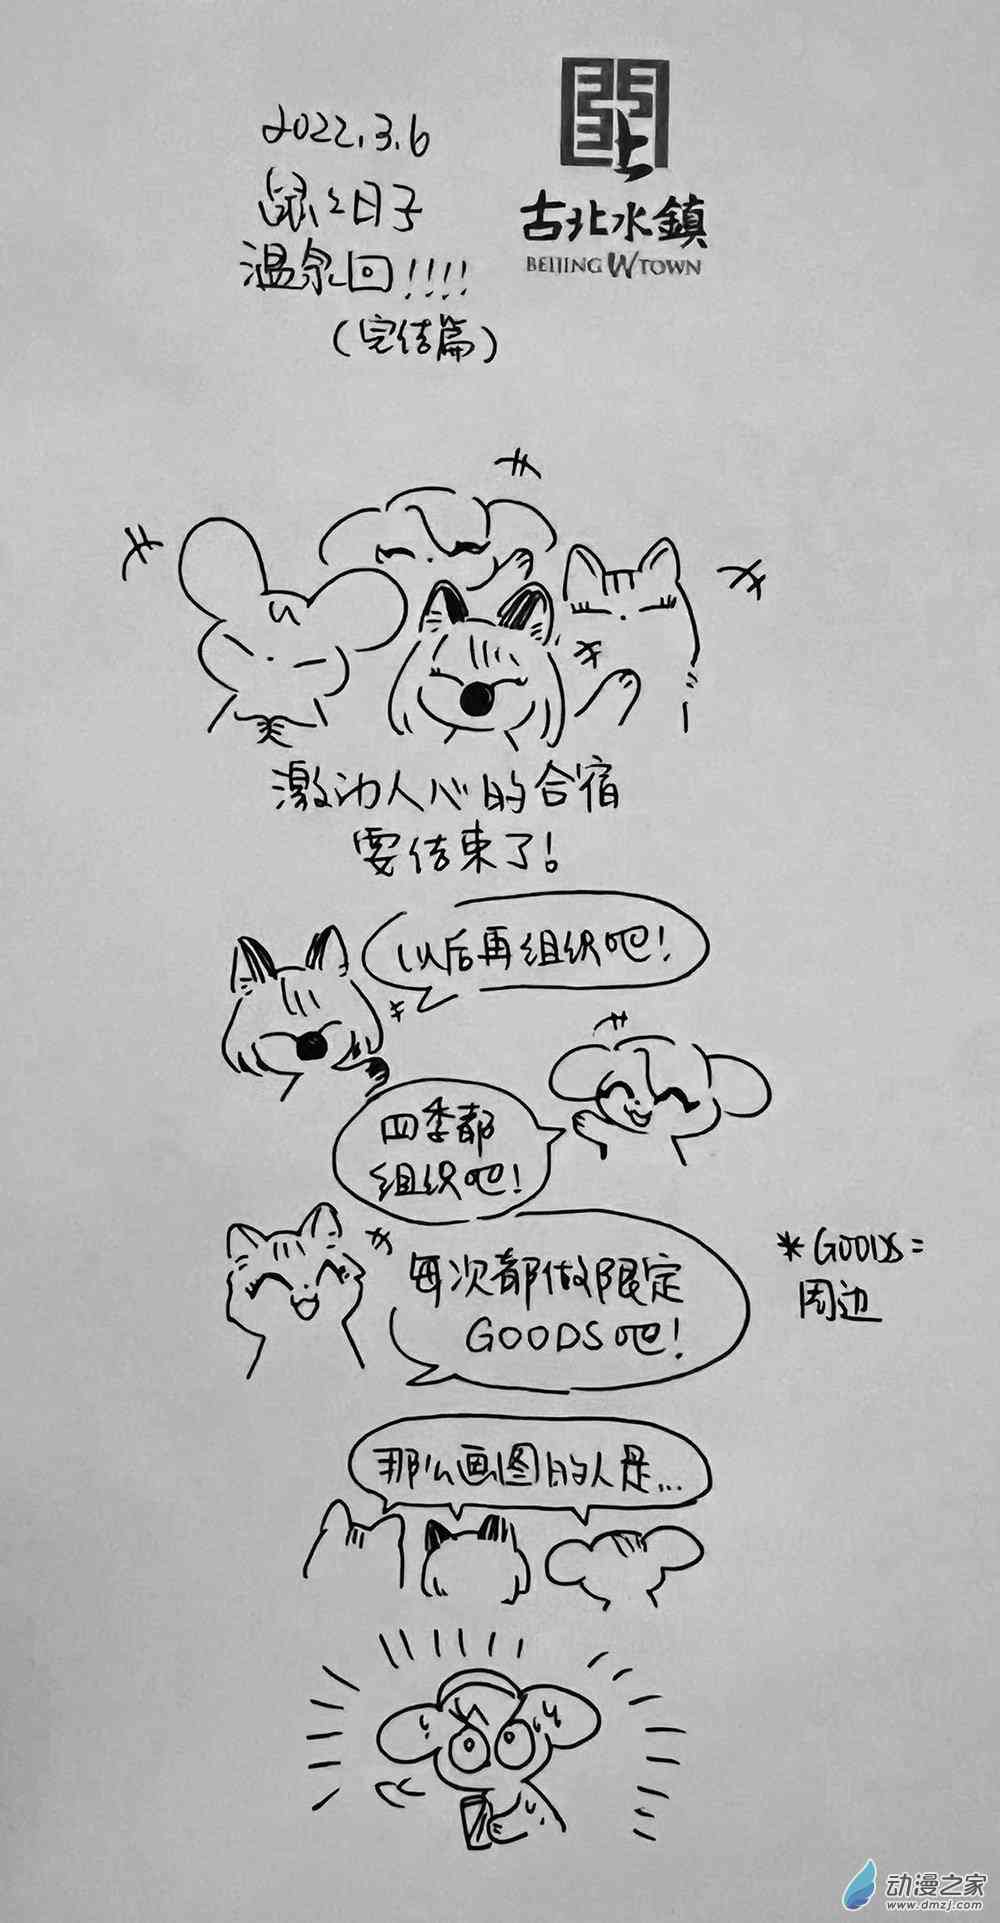 2022.3.6
鼠之日子
温泉回!!!!
(完结篇)
古北水鎮
BEIJING WTOWN
激动人心的合宿
要结束了!
以后再组织吧!
四季都
组织吧!
每次都做限定
GOODS吧!
*GOODS=
周边
那么画图的人是...
动漫之家
www.dmzj.com